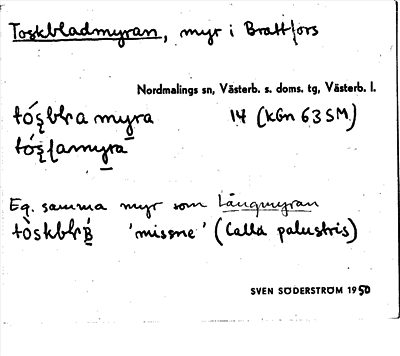 Toskbladmyran, myr i Brattfors
Nordmalings sn, Västerb. s. doms. tg, Västerb. l.
myra 14 (kGn 63 SM)
Eg. samma myr som Långmyran
'missne' (Calla palustris)
SVEN SÖDERSTRÖM 1950